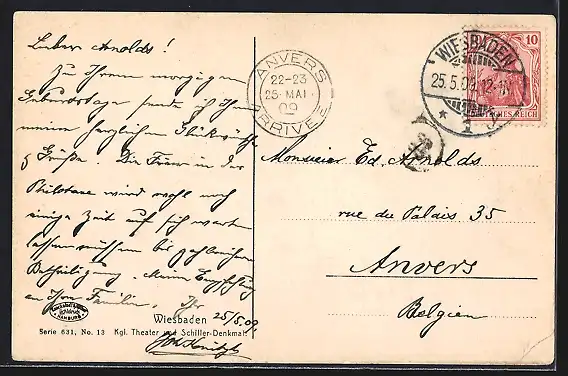 Lieber Arnolds!
Zu Ihrem morgigen
Geburtstage sende ich Ihnen
meine herzlichen Glückwünsche
& Grüße. Die Feier in der
wird wohl noch
einige Zeit auf sich warten
lassen müssen bis
Betheiligung. Meine Empfehlung
an Ihre Familie. Ihr
25/5.09.
Wiesbaden
Serie 631, No. 13 Kgl. Theater und Schiller-Denkmal.
HAMBURG
ANVERS
22-23
25 MAI
09
ARRIVEE
WIESBADEN
25.5.09.12-1N
* 1
10
DEUTSCHES REICH
Monsieur Ed. Arnolds
rue du Palais 35
Anvers
Belgien